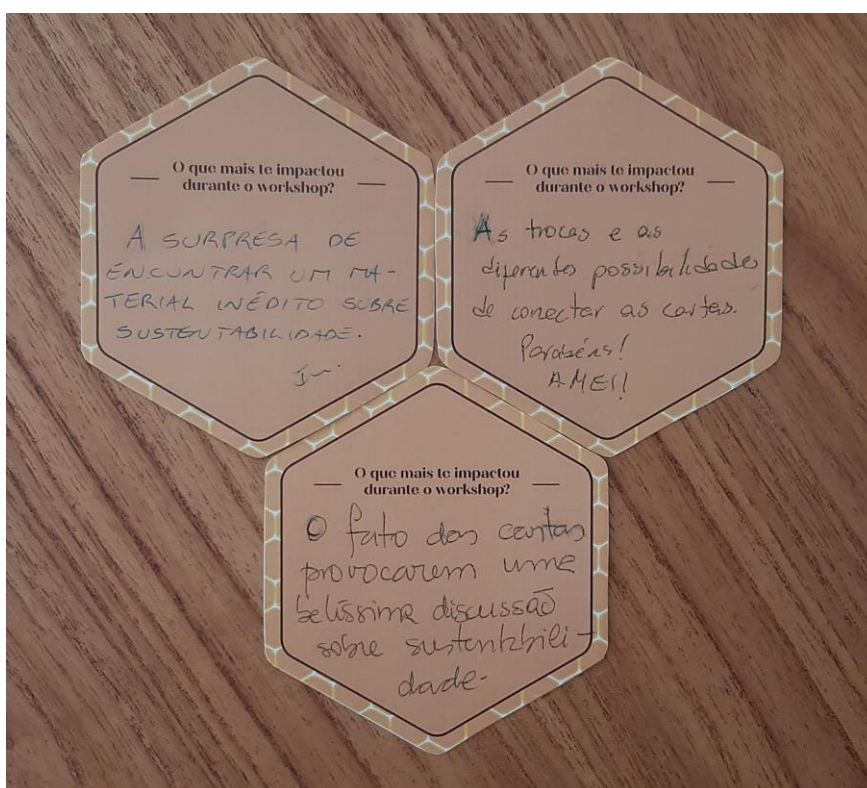 O que mais te impactou
durante o workshop?
A SURPRESA DE
ENCONTRAR UM MA-
TERIAL INÉDITO SOBRE
SUSTENTABILIDADE.
O que mais te impactou
durante o workshop?
As trocas e as
diferentes possibilidades
de conectar as cartas.
Parabéns!
AMEI!
O que mais te impactou
durante o workshop?
O fato das cartas
provocarem uma
belíssima discussão
sobre sustentabili-
dade.